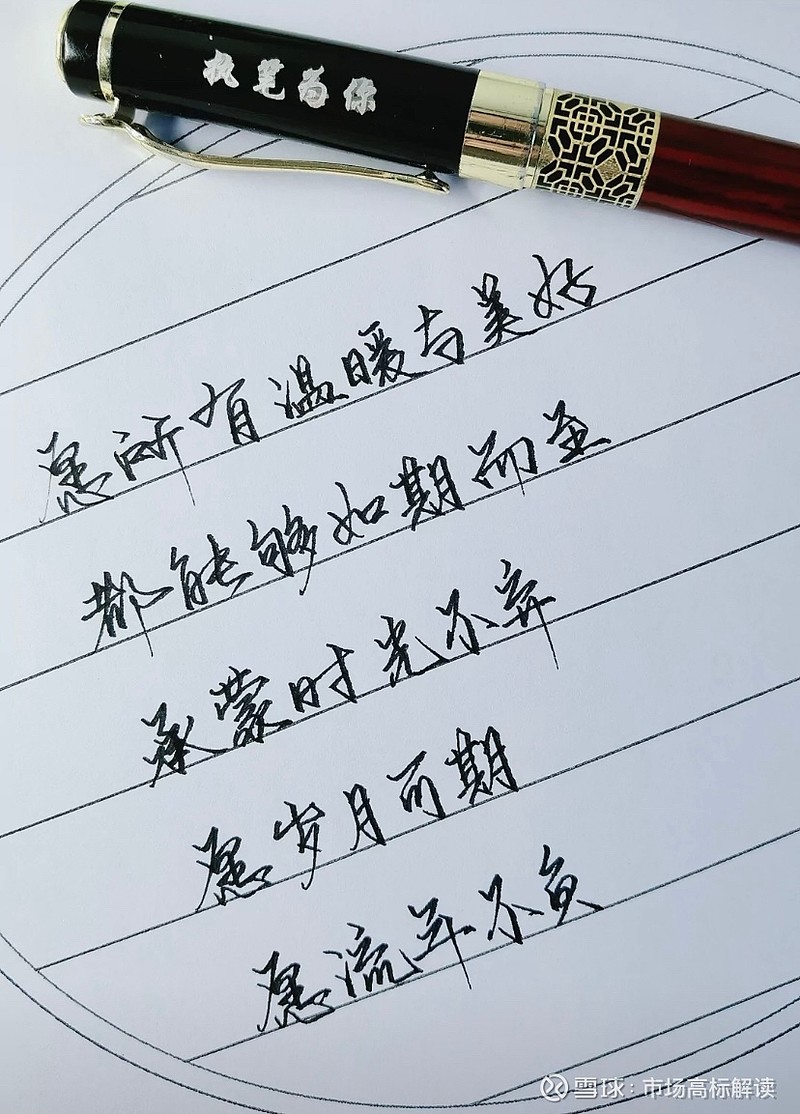 执笔为你
愿所有温暖与美好
都能够如期而至
承蒙时光不弃
愿岁月可期
愿流年不负
雪球：市场高标解读